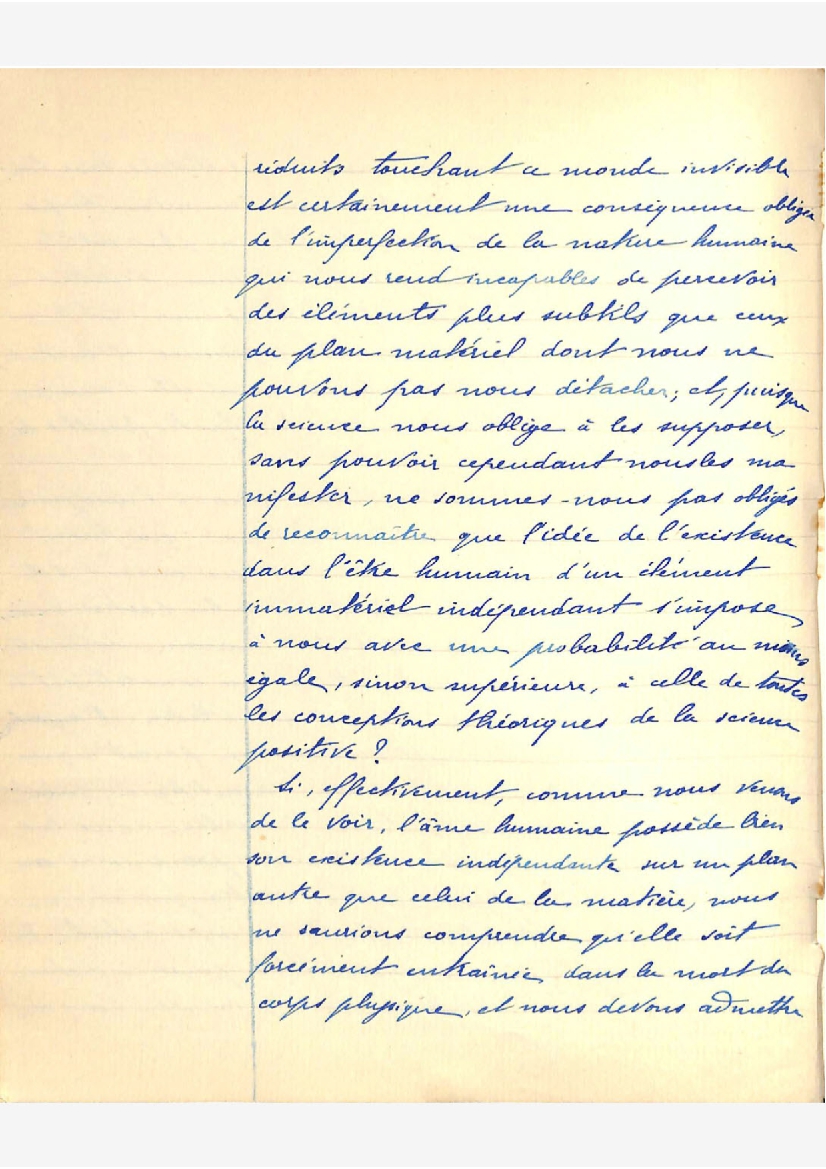 réduits touchant ce monde invisible
est certainement une conséquence obligée
de l'imperfection de la nature humaine
qui nous rend incapables de percevoir
des éléments plus subtils que ceux
du plan matériel dont nous ne
pouvons pas nous détacher; et, puisque
la science nous oblige à les supposer,
sans pouvoir cependant nous les ma
nifester, ne sommes-nous pas obligés
de reconnaître que l'idée de l'existence
dans l'être humain d'un élément
immatériel indépendant s'impose
à nous avec une probabilité au moins
égale, sinon supérieure, à celle de toutes
les conceptions théoriques de la science
positive ?
Si, effectivement, comme nous venons
de le voir, l'âme humaine possède bien
son existence indépendante sur un plan
autre que celui de la matière, nous
ne saurions comprendre qu'elle soit
forcément entraînée dans la mort du
corps physique, et nous devons admettre